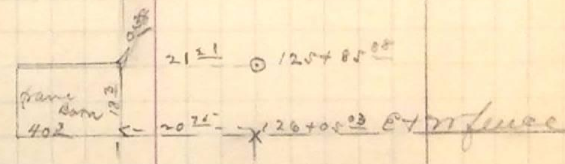 21 21 ⊙ 125+85 08
frame
Barn
18 3
40 2
20 75 126+05 03 E+W fence